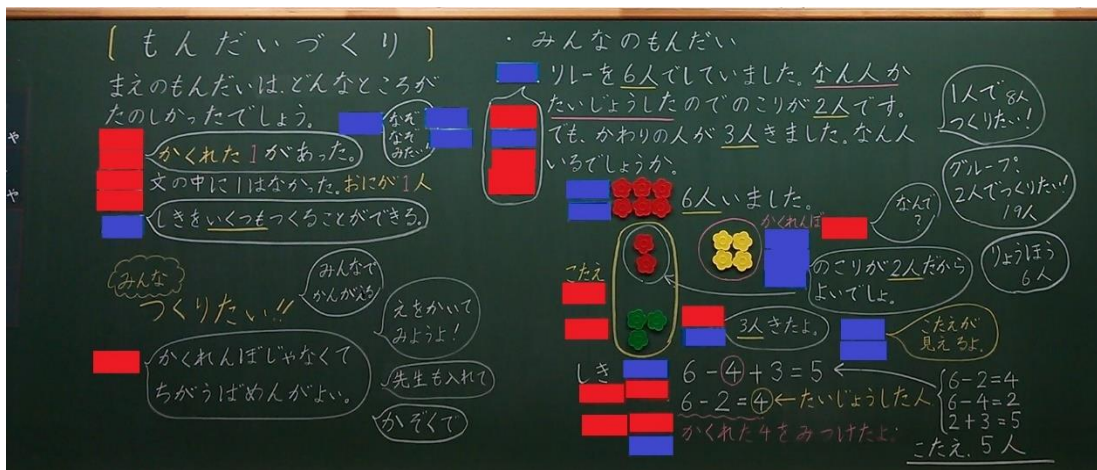 [もんだいづくり]
まえのもんだいは、どんなところが
たのしかったでしょう。
なぞ
なぞ
みたい!
かくれた1があった。
文の中に1はなかった。おにが1人
しきをいくつもつくることができる。
みんな
つくりたい!!
みんなで
かんがえる
えをかいて
みようよ!
かくれんぼじゃなくて
ちがうばめんがよい。
先生も入れて
かぞくで
・みんなのもんだい
リレーを6人でしていました。なん人か
たいじょうしたのでのこりが2人です。
でも、かわりの人が3人きました。なん人
いるでしょうか。
1人で8人
つくりたい!
グループ
2人でつくりたい!
19人
りょうほう
6人
6人いました。
かくれんぼ
なんで
?
のこりが2人だから
よいでしょ。
こたえ
3人きたよ。
こたえが
見えるよ。
しき
6-④+3=5
6-2=④←たいじょうした人
かくれた4をみつけたよ。
6-2=4
6-4=2
2+3=5
こたえ.5人
や
や